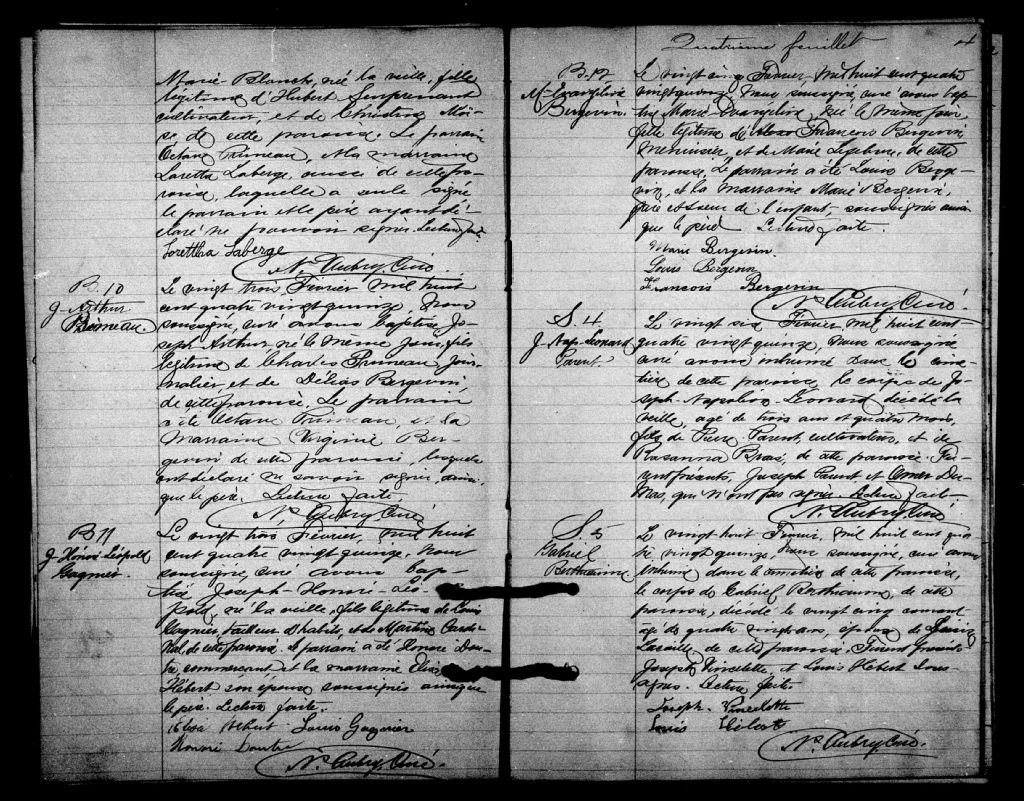 Marie-Blanche, née la veille, fille
légitime d'Hubert Surprenant
cultivateur, et de Christina Moï-
se de cette paroisse. Le parrain
Octave Primeau, et la marraine
Loretta Laberge, aussi de cette pa-
roisse, laquelle a seule signé
le parrain et le père ayant dé-
claré ne pouvoir signer. Lecture faite.
Lorettha Laberge
Ns Aubry, Curé
B. 10
J. Arthur
Primeau.
Le vingt trois Février mil huit
cent quatre vingt quinze, Nous
soussigné, curé avons baptisé Jo-
seph-Arthur né le même jour, fils
légitime de Charles Primeau jour-
nalier, et de Délias Bergevin
de cette paroisse. Le parrain
a été Octave Primeau, et la
marraine Virginie Ber-
gevin de cette paroisse, lesquels
ont déclaré ne savoir signer, ainsi
que le père. Lecture faite.
Ns Aubry, Curé
B 11
J. Honoré Léopold
Gagnier.
Le vingt trois Février, mil huit
cent quatre vingt quinze, nous
soussigné, curé avons bap-
tisé Joseph-Honoré-Léo-
pold, né la veille, fils légitime de Louis
Gagnier, tailleur d'habits, et de Martine Cardi-
nal, de cette paroisse. Le parrain a été Honoré Dau-
tre, commerçant et la marraine
Hébert son épouse soussignés ainsi que
le père. Lecture faite.
Hébert Louis Gagnier
Honoré Dautre
Ns Aubry, Curé.
Quatrième feuillet 4
B. 12
M. Evangéline
Bergevin.
Le vingt cinq Février mil huit cent quatre
vingt quinze, nous soussigné, curé avons bap-
tisé Marie-Evangéline, née le même jour,
fille légitime de François Bergevin
menuisier et de Marie Lefebvre, de cette
paroisse. Le parrain a été Louis Berge-
vin, et la marraine Marie Bergevin,
frère et soeur de l'enfant, soussignés ainsi
que le père. Lecture faite.
Marie Bergevin.
Louis Bergevin
François Bergevin
Ns Aubry, Curé.
S. 4
J. Nap. Léonard
Parent.
Le vingt six Février mil huit cent
quatre vingt quinze, nous soussigné
curé avons inhumé dans le cime-
tière de cette paroisse, le corps de Jo-
seph-Napoléon-Léonard décédé la
veille, agé de trois ans et quatre mois,
fils de Pierre Parent, cultivateur, et de
Rosanna de cette paroisse. Fu-
rent présents, Joseph Parent et Omer Du-
mas, qui n'ont pas signé. Lecture faite.
Ns Aubry, Curé
S. 5
Gabriel
Berthiaume
Le vingt huit Février, mil huit cent qua-
tre vingt quinze, nous soussigné, curé avons
inhumé dans le cimetière de cette paroisse,
le corps de Gabriel Berthiaume, de cette
paroisse, décédé le vingt cinq courant
agé de quatre vingt ans, époux de
Lacaille de cette paroisse. Furent présents
Joseph Vincelette, et Louis Hébert sous-
signés. Lecture faite.
Joseph Vincelette
Louis Hébert
Ns Aubry, Curé.